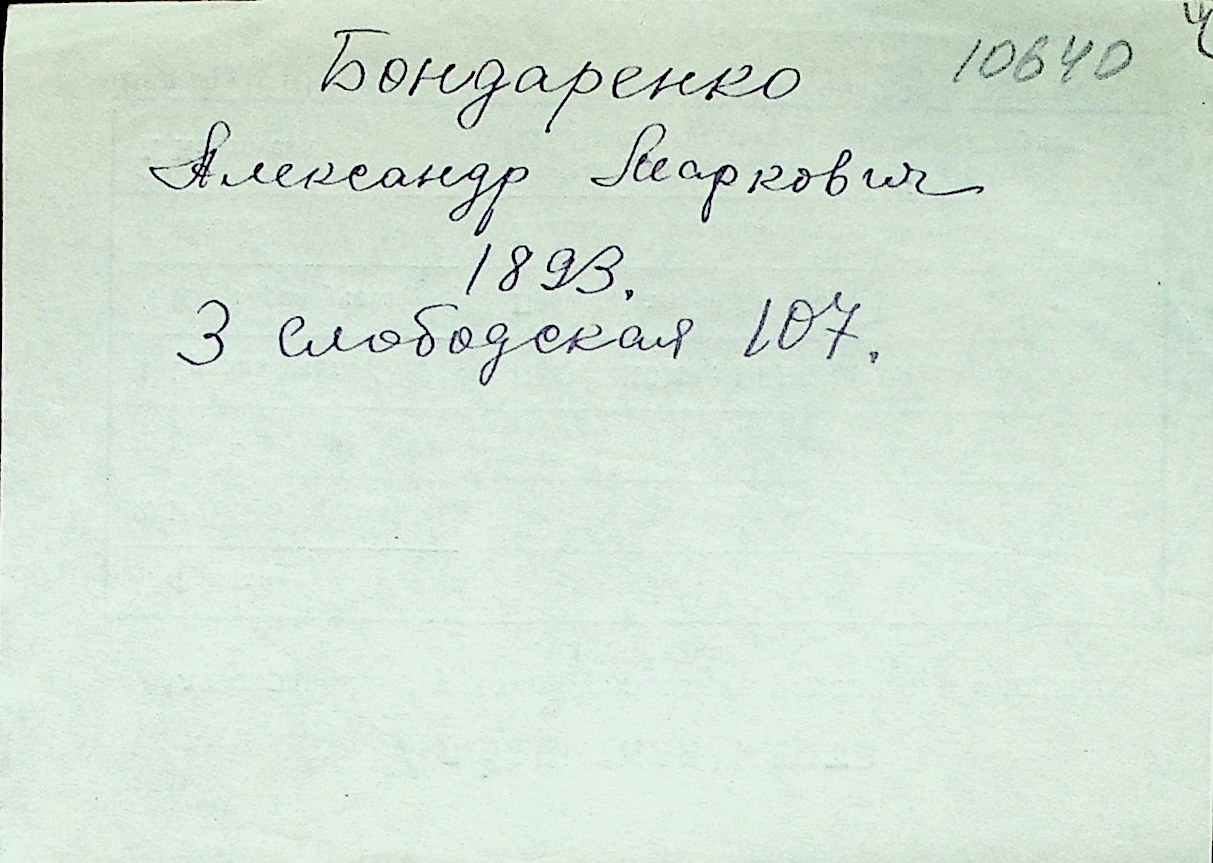 Бондаренко 10640
Александр Маркович
1893.
3 слободская 107.